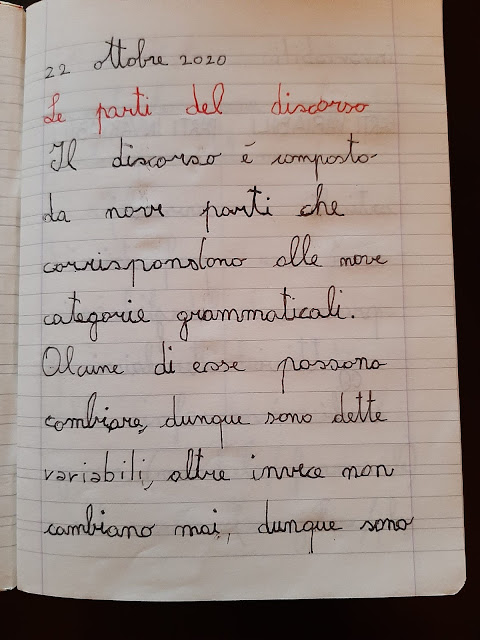 22 ottobre 2020
Le parti del discorso
Il discorso é composto
da nove parti che
corrispondono alle nove
categorie grammaticali.
Alcune di esse possono
cambiare, dunque sono dette
variabili, altre invece non
cambiano mai, dunque sono